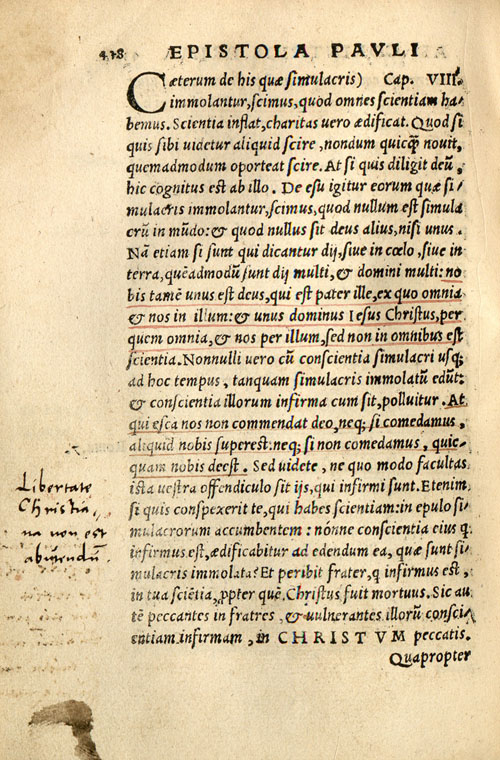 428 EPISTOLA PAVLI
Cæterum de his quæ simulacris) Cap. VIII.
immolantur, scimus, quod omnes scientiam ha/
bemus. Scientia inflat, charitas vero ædificat. Quod si
quis sibi videtur aliquid scire, nondum quicq̃ novit,
quemadmodum oporteat scire. At si quis diligit deũ,
hic cognitus est ab illo. De esu igitur eorum quæ si/
mulacris immolantur, scimus, quod nullum est simula
crũ in mũdo: & quod nullus sit deus alius, nisi unus.
Nã etiam si sunt qui dicantur dij, sive in cœlo, sive in
terra, quẽadmodũ sunt dij multi, & domini multi: no
bis tamẽ unus est deus, qui est pater ille, ex quo omnia
& nos in illum: & unus dominus Iesus Christus, per
quem omnia, & nos per illum, sed non in omnibus est
scientia. Nonnulli vero cũ conscientia simulacri usq;
ad hoc tempus, tanquam simulacris immolatũ edũt:
& conscientia illorum infirma cum sit, polluitur. At
qui esca nos non commendat deo, neq; si comedamus,
aliquid nobis superest: neq; si non comedamus, quic-
quam nobis deest. Sed videte, ne quo modo facultas
Libertate
ista vestra offendiculo sit ijs, qui infirmi sunt. Etenim
Christia,
si quis conspexerit te, qui habes scientiam: in epulo si/
na non est
mulacrorum accumbentem: nónne conscientia eius q
abutendũ.
infirmus est, ædificabitur ad edendum ea, quæ sunt si/
mulacris immolata? Et peribit frater, q infirmus est,
in tua sciẽtia, ppter quẽ Christus fuit mortuus. Sic au
tẽ peccantes in fratres, & vulnerantes illorũ consci/
entiam infirmam, in CHRISTVM peccatis.
Quapropter